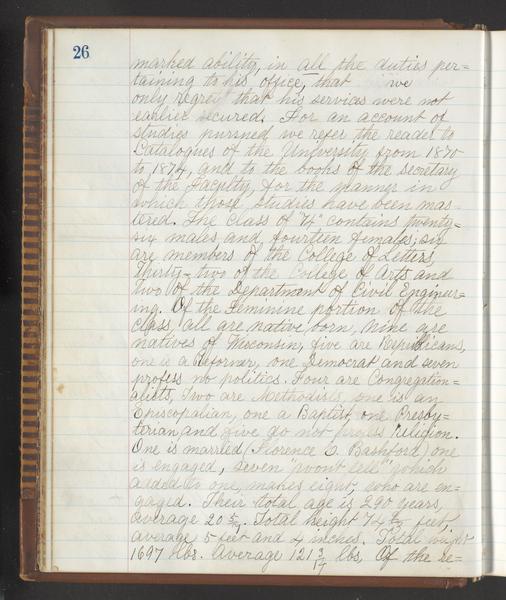 26
marked ability, in all the duties per=
taining to his office, that we
only regret that his services were not
earlier secured. For an account of
studies pursued we refer the reader to
Catalogues of the University from 1870
to 1874, and to the books of the secretary
of the Faculty, for the manner in
which those studies have been mas=
tered. The class of "74" contains twenty=
six males and fourteen females; six
are members of the College of Letters,
thirty-two of the College of Arts and
two of the Department of Civil Engineer=
ing. Of the Feminine portion of the
class, all are native born, nine are
natives of Wisconsin, five are Republicans,
one is a Reformer, one Democrat and seven
profess no politics. Four are Congregation=
alists, Two are Methodists, one is an
Episcopalian, one a Baptist, one Presby=
terian, and five do not profess religion.
One is married (Florence Bashford) one
is engaged, seven "won't tell" which
added to one, makes eight, who are en=
gaged. Their total age is 290 years,
average 20 5/7. Total height 74 feet,
average 5 feet and 4 inches. Total weight
1697 lbs. Average 121 3/14 lbs. Of the re=